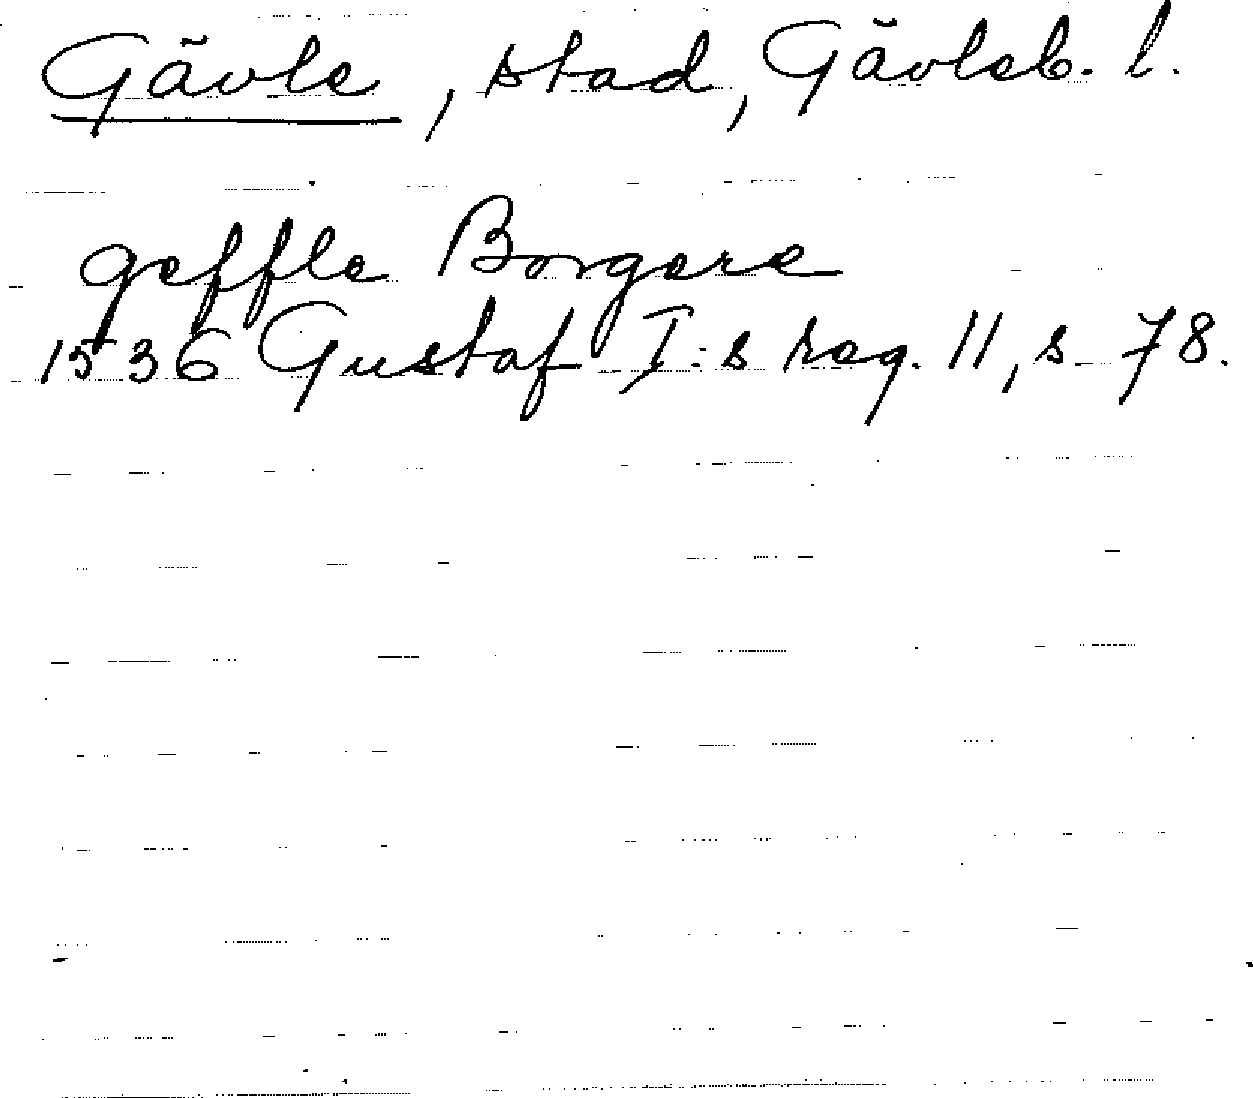 Gävle, stad, Gävleb. l.
geffle Borgere
1536 Gustaf I:s reg. 11, s. 78.